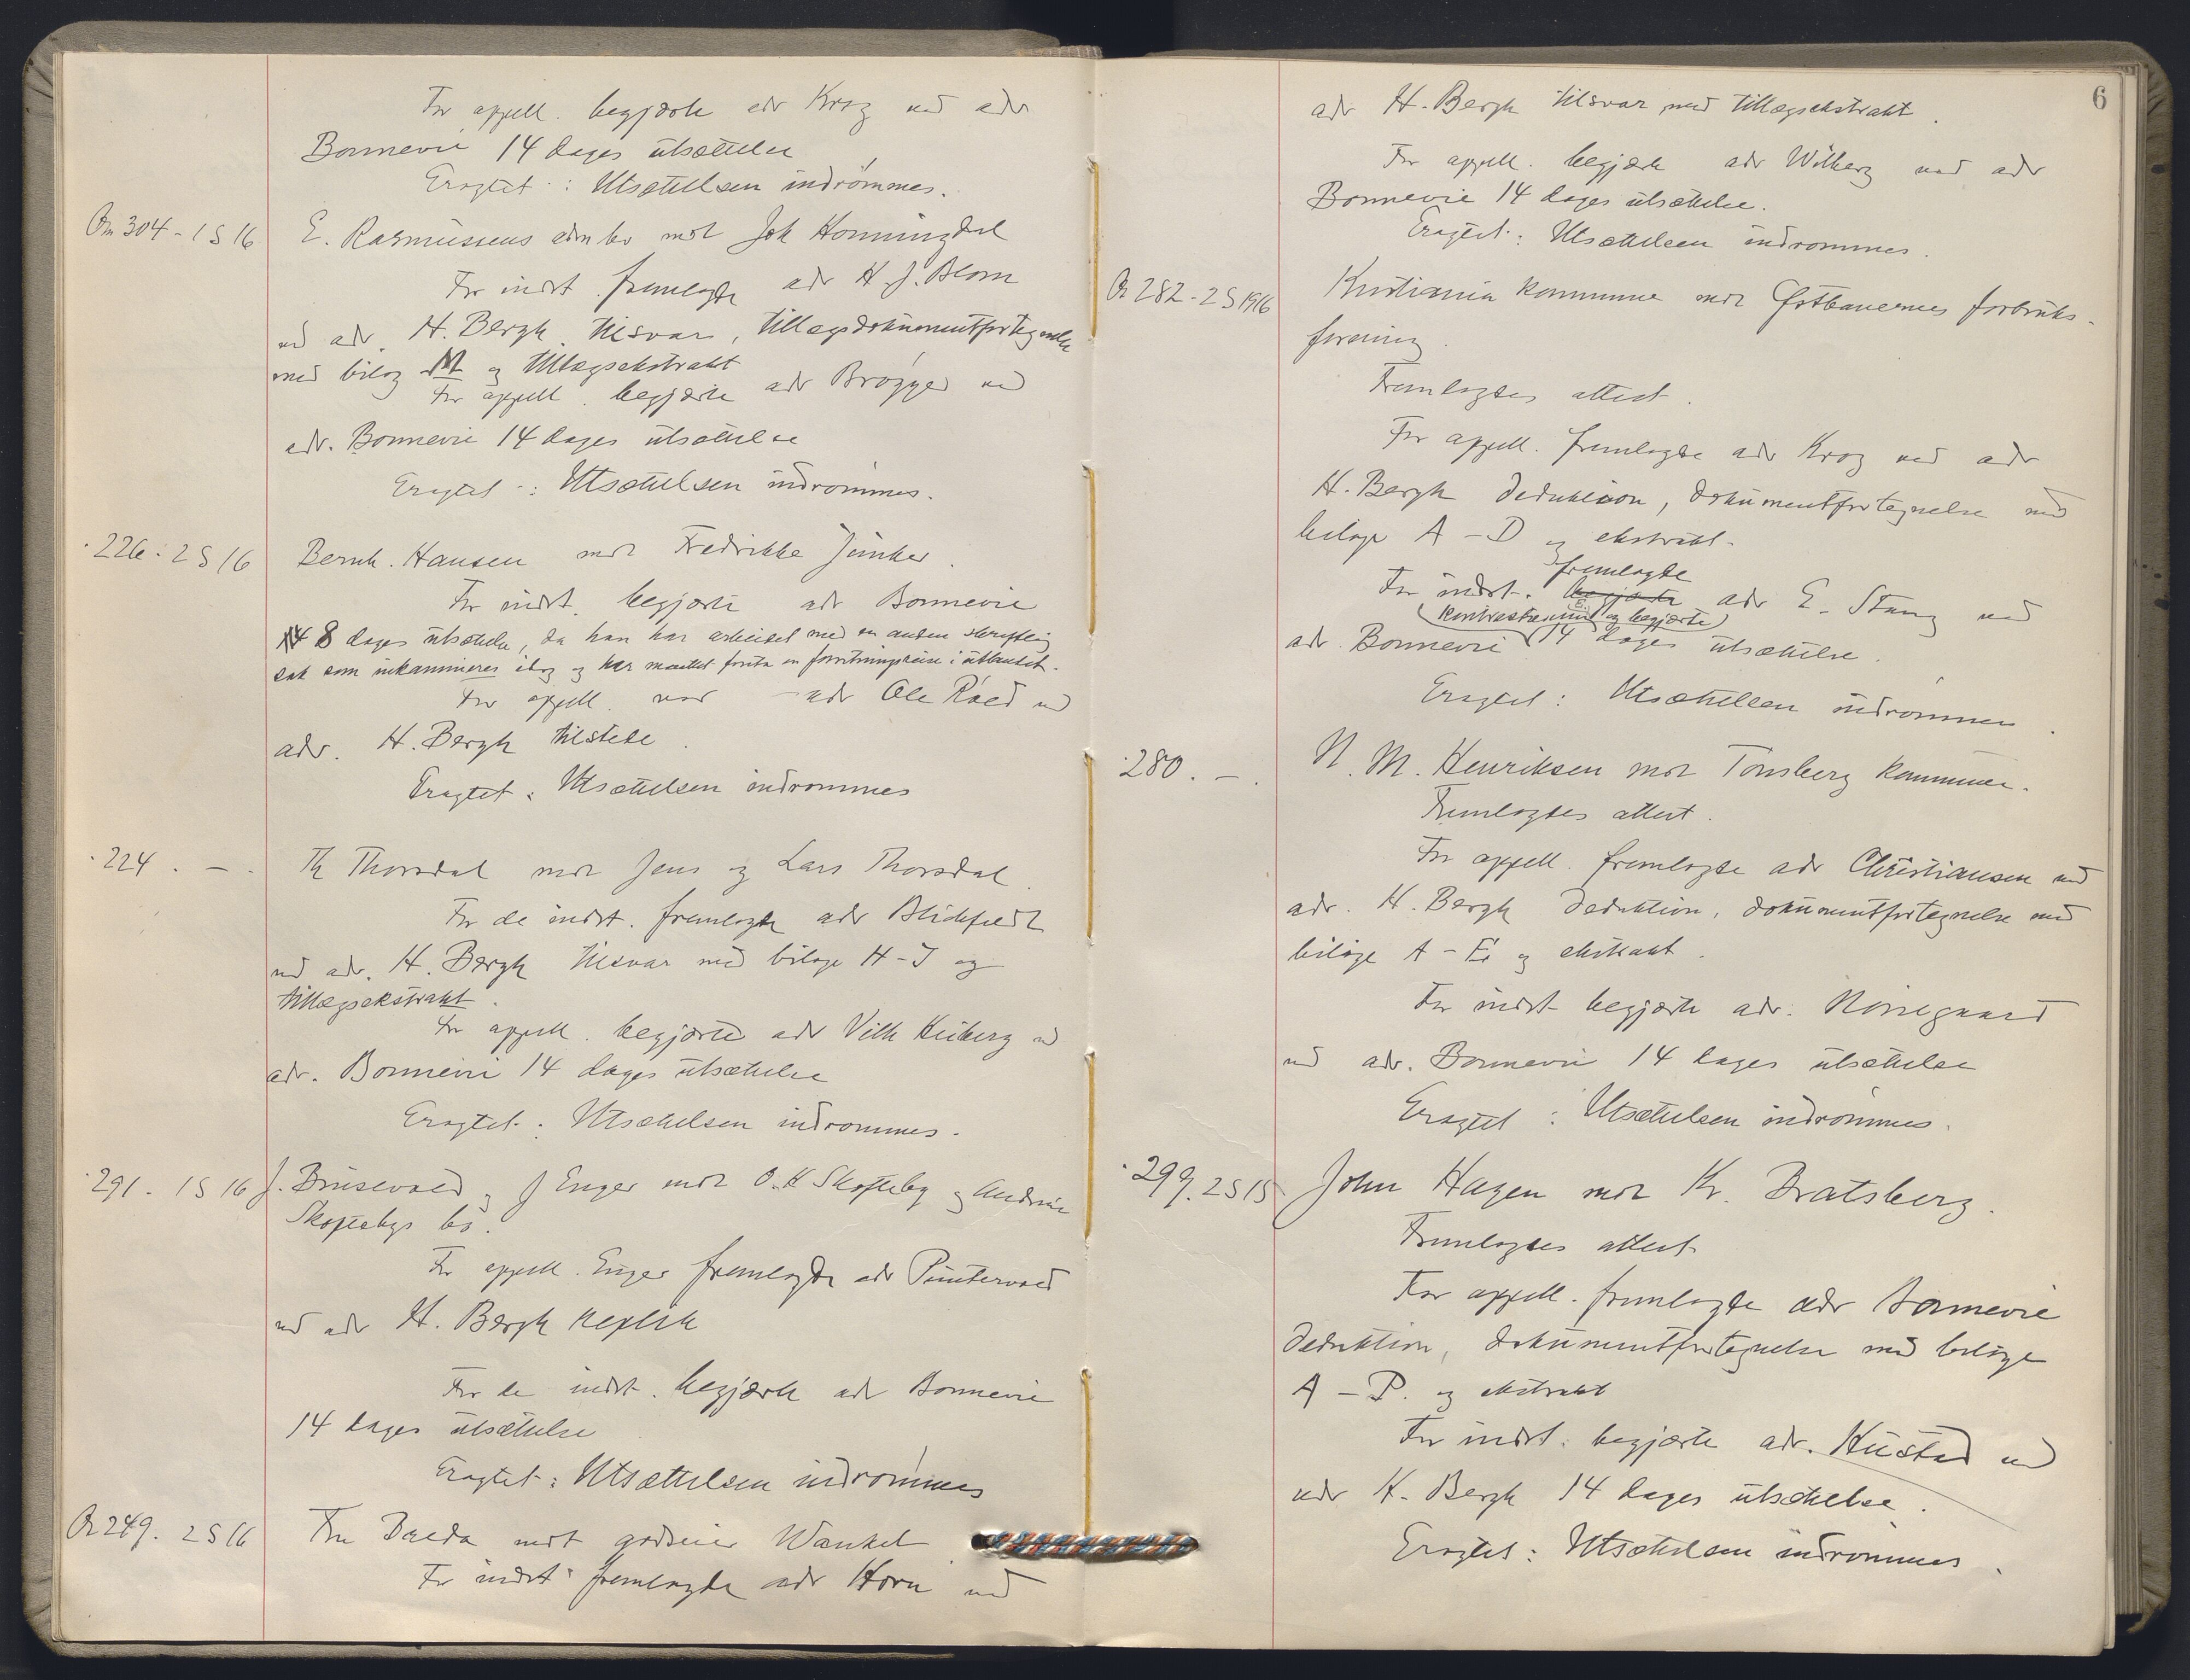 For appell. begjærte adv Krog ved adv
Bonnevie 14 dages utsættelse
Eragtet: Utsættelsen indrømmes.
Or 304 - 1 S 16 E. Rasmussens adm bo mot Joh Honningdal
For indst. fremlagde adv H. J. Blom
ved adv. H. Bergh tilsvar, tillægsdokumentfortegnelse
med bilag M og tillægsekstrakt
For appell. begjærte adv Brøgger ved
adv. Bonnevie 14 dages utsættelse
Eragtet: Utsættelsen indrømmes.
226. 2 S 16 Bernh. Hansen mot Fredrikke Junker.
For indst. begjærte adv Bonnevie
14 8 dages utsættelse, da han har arbeidet med en anden skriftlig
sak som inkamineres idag og har maattet foreta en forretningsreise i utlandet.
For appell. var adv Ole Røed ved
adv. H. Bergh tilstede.
Eragtet: Utsættelsen indrømmes
224. - . Th Thorsdal mot Jens og Lars Thorsdal.
For de indst. fremlagde adv Blichfeldt
ved adv. H. Bergh tilsvar med bilage H-J og
tillægsekstrakt.
For appell. begjærte adv Vilh Heiberg ved
adv. Bonnevie 14 dages utsættelse
Eragtet: Utsættelsen indrømmes.
291. 1 S 16 J. Brusevold og J Enger mot O. K Skofteby og Andrine
Skoftebys bo.
For appell. Enger fremlagde adv Puntervold
ved adv H. Bergh replik
For de indst. begjærte adv Bonnevie
14 dages utsættelse
Eragtet: Utsættelsen indrømmes
Or 249. 2 S 16 Fru Daeda mot godseier Wankel
For indst. fremlagde adv Horn ved
6
adv H. Bergh tilsvar med tillægsekstrakt.
For appell. begjærte adv Wilberg ved adv
Bonnevie 14 dages utsættelse.
Eragtet: Utsættelsen indrømmes.
Or 282. 2 S 1916 Kristiania kommune mot Østbanernes forbruks-
forening.
Fremlagdes attest.
For appell. fremlagde adv Krog ved adv
H. Bergh deduktion, dokumentfortegnelse med
bilage A - D og ekstrakt.
fremlagde
For indst. begjærte adv E. Stang ved
(kontrastævning E. og begjærte)
adv. Bonnevie 14 dages utsættelse.
Eragtet: Utsættelsen indrømmes.
280. - . N. M. Henriksen mot Tønsberg kommune.
Fremlagdes attest.
For appell. fremlagde adv Christiansen ved
adv. H. Bergh deduktion, dokumentfortegnelse med
bilage A - E og ekstrakt.
For indst begjærte adv. Nørregaard
ved adv. Bonnevie 14 dages utsættelse
Eragtet: Utsættelsen indrømmes.
299. 2 S 15 John Hagen mot Kr. Bratsberg.
Fremlagdes attest
For appell. fremlagde adv Bonnevie
deduktion, dokumentfortegnelse med bilage
A - P. og ekstrakt
For indst. begjærte adv. Hustad ved
adv H. Bergh 14 dages utsættelse.
Eragtet: Utsættelsen indrømmes.